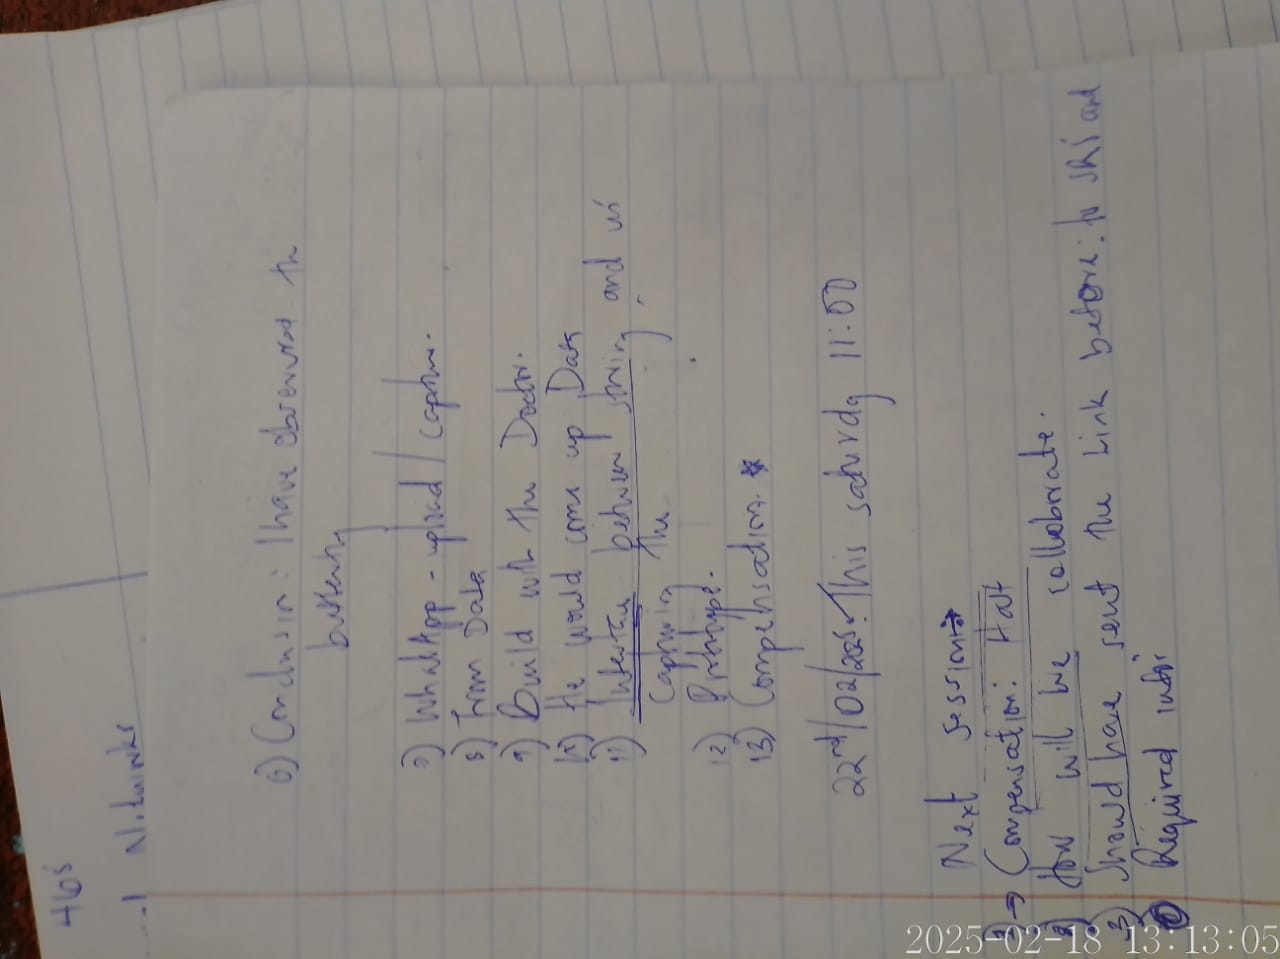 46s
6) Conclusion: I have observed the
7) WhatApp - upload / capture.
8) From Data
9) Build with the Doctor.
10) He would come up Data
11) between and
Capturing the
12) Prototype.
13) Compensation.
22nd/02/2025. This saturday 11:00
Next session
1) → Compensation:
2) How will we collaborate.
3) Should have sent the Link before: to and
Required
2025-02-18 13:13:05